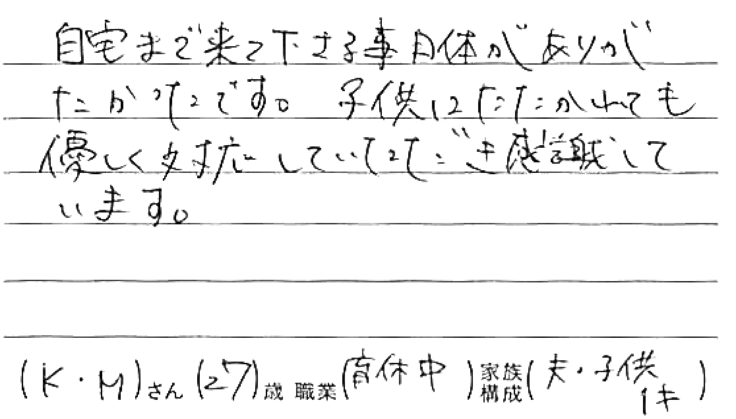 自宅まで来て下さる事自体がありが
たかったです。子供にたたかれても
優しく対応していただき感謝して
います。
(K・M)さん(27)歳 職業(育休中)家族構成(夫・子供1才)